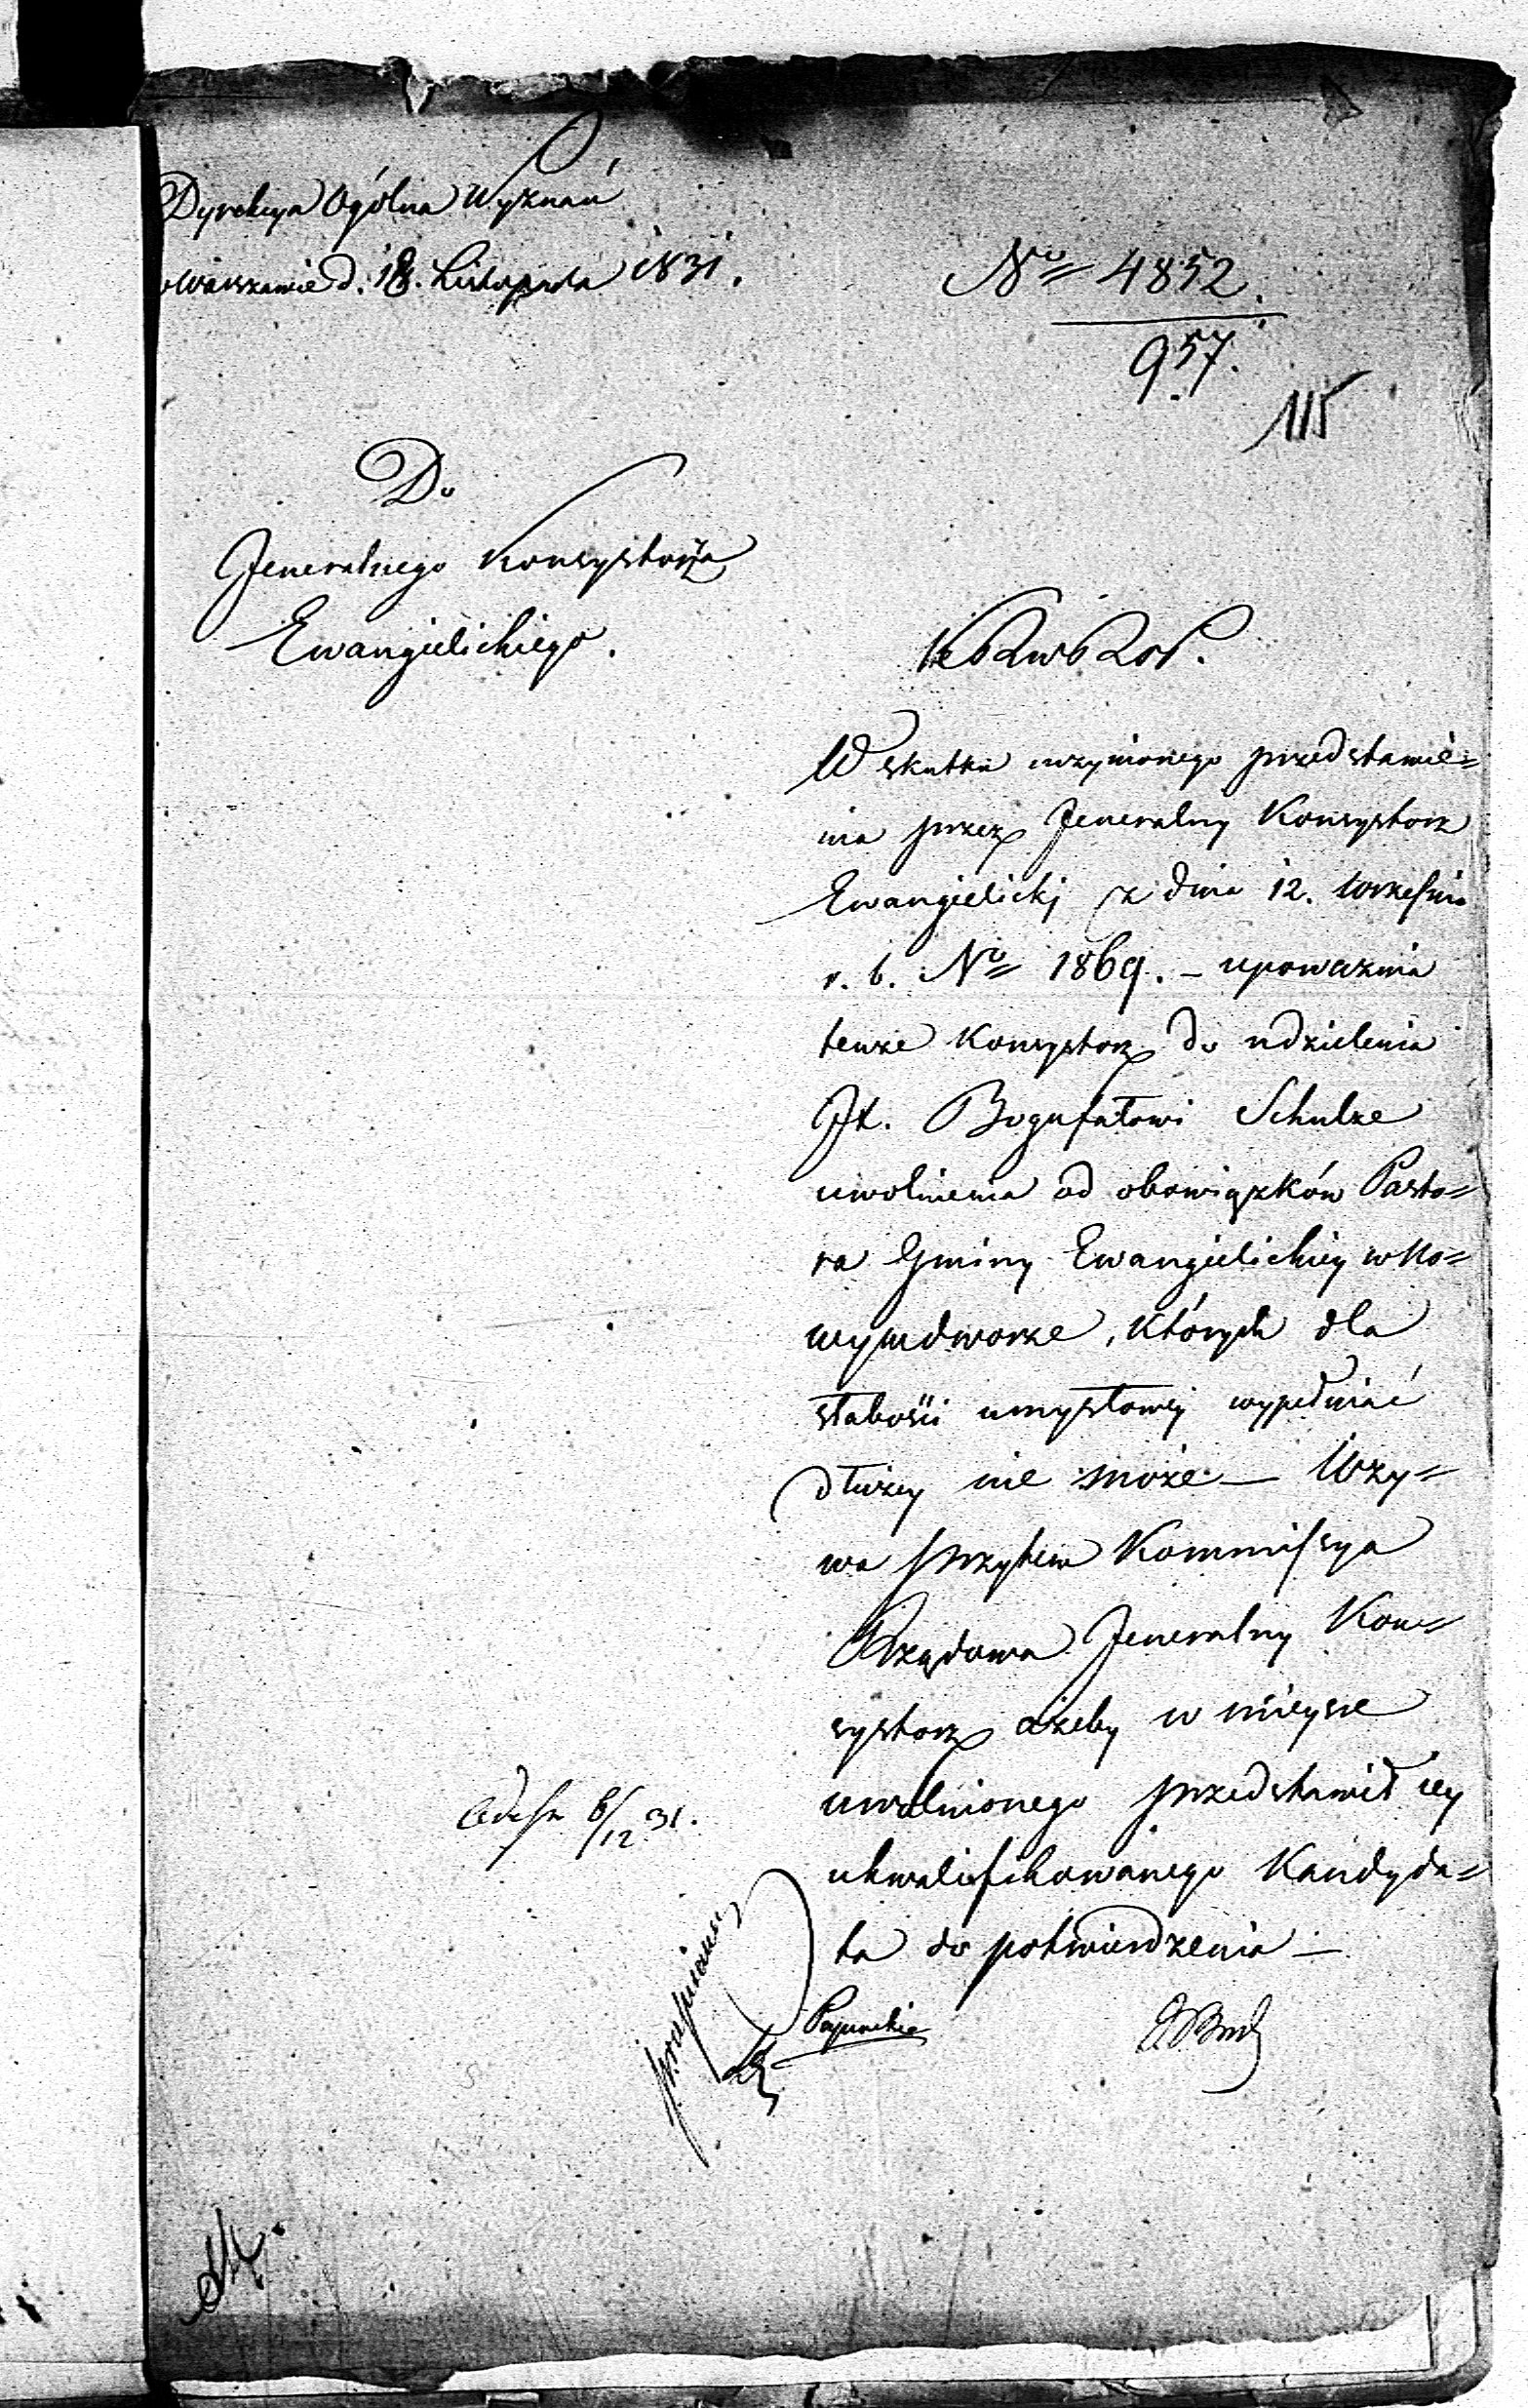 Dyrekcya Ogólna Wyznań
w Warszawie d. 18. Listopada 1831.
No 4852.
957.
115
Do
Jeneralnego Konsystorza
Ewangielickiego.
W skutku uczynionego przedstawie=
nia przez Jeneralny Konsystorz
Ewangielicki z dnia 12. Września
r. b. No 1869. – upoważnia
tenże Konsystorz do udzielenia
JX. Bogufałowi Schulze
uwolnienia od obowiązków Pasto=
ra Gminy Ewangielickiey w No=
wymdworze, których dla
słabości umysłowey wypełniać
dłużey nie może – Wzy=
wa przytem Kommissya
Rządowa Jeneralny Kon=
systorz ażeby w mieysce
uwolnionego przedstawił iey
ukwalifikowanego Kandyda=
ta do potwierdzenia –
6/12 31.